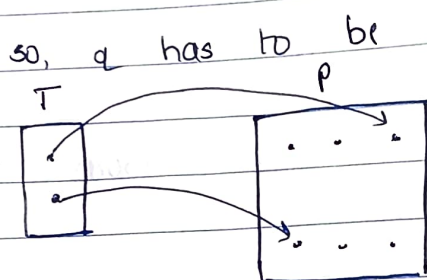 so, q has to be
T P